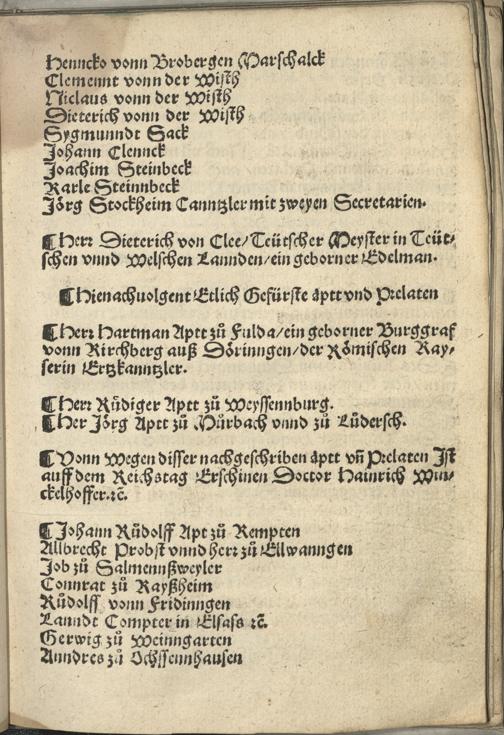 Henncko vonn Brobergen Marschalck
Clemennt vonn der Wisth
Niclaus vonn der Wisth
Dieterich vonn der Wisth
Sygmunndt Sack
Johann Clennck
Joachim Steinbeck
Karle Steinnbeck
Jörg Stockheim Canntzler mit zweyen Secretarien.
¶ Herr Dieterich von Clee/Teütscher Meyster in Teüt-
schen vnnd Welschen Lannden/ein geborner Edelman.
¶ Hienachuolgent Etlich Gefürste äptt vnd Prelaten
¶ Herr Hartman Aptt zů Fulda/ein geborner Burggraf
vonn Kirchberg auß Dörinngen/der Römischen Kay-
serin Ertzkanntzler.
¶ Herr Růdiger Aptt zů Weyssennburg.
¶ Her Jörg Aptt zů Můrbach vnnd zů Lüdersch.
¶ Vonn wegen disser nachgeschriben äptt vñ Prelaten Jst
auff dem Reichstag Erschinen Doctor Hainrich Win-
ckelhoffer.ꝛc̄.
¶ Johann Růdolff Apt zů Kempten
Allbrecht Probst vnnd herr zů Ellwanngen
Job zů Salmennßweyler
Connrat zů Kayßheim
Růdolff vonn Fridinngen
Lanndt Compter in Elsass ꝛc̄.
Gerwig zů Weinngarten
Anndres zů Ochssennhausen